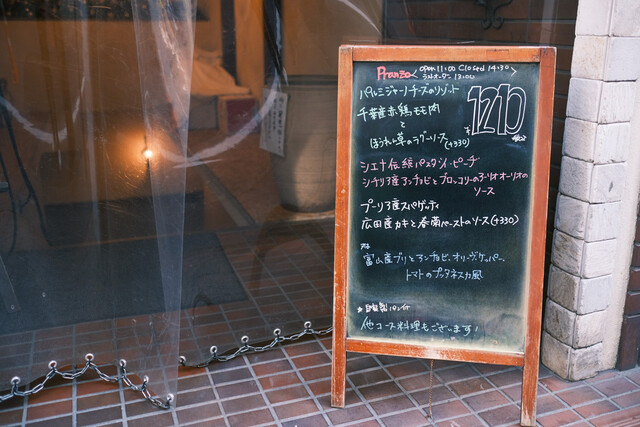 Pranzo <open 11:00 Closed 14:30>
ラストオーダー 13:00
パルミジャーノチーズのリゾット
¥1210
千葉産赤鶏モモ肉
と
ほうれん草のラグーソース(+330)
シエナ伝統パスタ ピーチ
シチリア産アンチョビとブロッコリーのアーリオオーリオの
ソース
プーリア産スパゲッティ
広田産カキと春菊ペーストのソース(+330)
富山産ブリとアンチョビ、オリーヴ、ケッパー、
トマトのプッタネスカ風
*自家製パン付
他コース料理もございます!